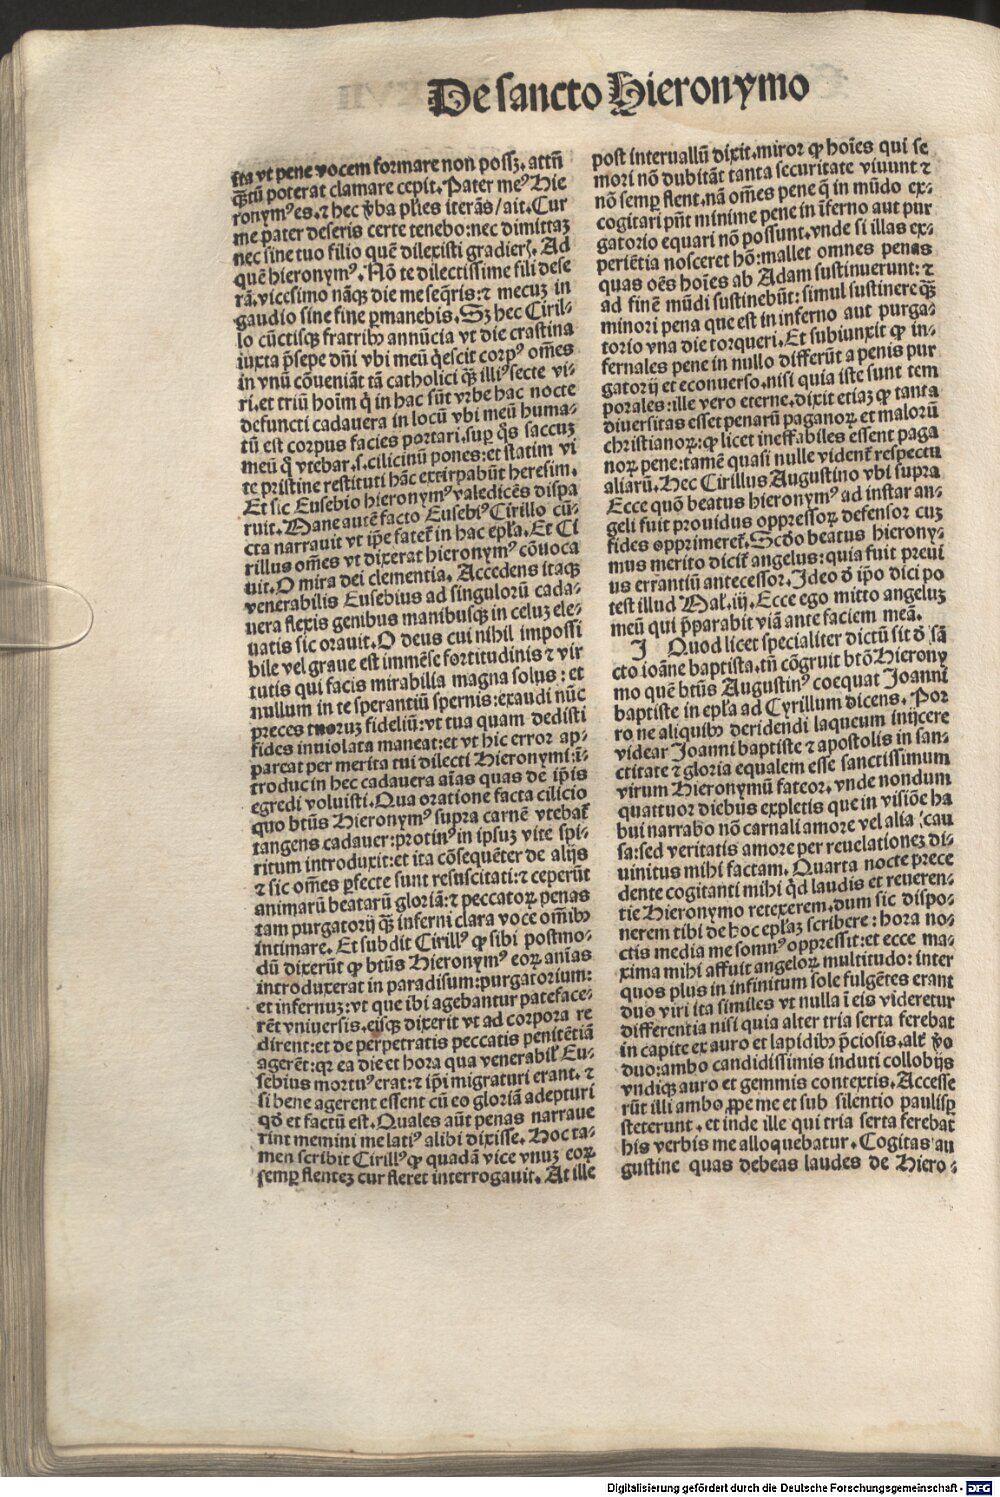 De sancto Hieronymo
ita vt pene vocem formare non possꝫ. attñ
q̃tũ poterat clamare cepit. Pater meꝰ Hie
ronymꝰ es. ⁊ hec ṽba pl̃ies iterãs/ait. Cur
me pater deseris certe tenebo: nec dimittaꝫ
nec sine tuo filio quẽ dilexisti gradieř. Ad
quẽ hieronymꝰ. Nõ te dilectissime fili dese
rã. vicesimo nãqꝫ die me seq̃ris: ⁊ mecuꝫ in
gaudio sine fine ꝑmanebis. Sꝫ hec Ciril⸗
lo cũctisqꝫ fratribꝰ annũcia vt die crastina
iuxta p̃sepe dñi vbi meũ q̃escit corpꝰ om̃es
in vnũ cõueniãt tã catholici q̃ꝫ illiꝰ secte vi⸗
ri. et triũ hoĩm q̇ in hac sũt vrbe hac nocte
defuncti cadauera in locũ vbi meũ huma⸗
tũ est corpus facies portari. suꝑ q̇s saccuꝫ
meũ q̇ vtebar .s. cilicinũ pones: et statim vi
te pristine restituti hãc extirpabũt heresim.
Et sic Eusebio hieronymꝰ valedicẽs dispa
ruit. Mane autẽ facto Eusebiꝰ Cirillo cũ⸗
cta narrauit vt ip̃e fatet̃ in hac ep̃ła. Et Ci
rillus om̃es vt dixerat hieronymꝰ cõuoca
uit. O mira dei clementia. Accedens itaqꝫ
venerabilis Eusebius ad singulorũ cada⸗
uera flexis genibus manibusqꝫ in celuꝫ ele⸗
uatis sic orauit. O deus cui nihil impossi
bile vel graue est immẽse fortitudinis ⁊ vir
tutis qui facis mirabilia magna solus: et
nullum in te sperantiũ spernis: exaudi nũc
preces tuoruꝫ fideliũ: vt tua quam dedisti
fides inuiolata maneat: et vt hic error ap⸗
pareat per merita tui dilecti Hieronymi: ĩ⸗
troduc in hec cadauera aĩas quas de ip̃is
egredi voluisti. Qua oratione facta cilicio
quo btũs Hieronymꝰ supra carnẽ vtebat̃
tangens cadauer: protinꝰ in ipsuꝫ vite spi⸗
ritum introduxit: et ita cõsequẽter de alijs
⁊ sic om̃es ꝑfecte sunt resuscitati: ⁊ ceperũt
animarũ beatarũ gloriã: ⁊ peccatoꝝ penas
tam purgatorij q̃ꝫ inferni clara voce om̃ibꝰ
intimare. Et subdit Cirillꝰ ꝙ sibi postmo⸗
dũ dixerũt ꝙ btũs Hieronymꝰ eoꝝ anias
introduxerat in paradisum: purgatorium:
et infernuꝫ: vt que ibi agebantur pateface⸗
rẽt vniuersis. eijsqꝫ dixerit vt ad corpora re
dirent: et de perpetratis peccatis penitẽtiã
agerẽt: qꝛ ea die et hora qua venerabil̃ Eu⸗
sebius mortuꝰ erat: ⁊ ip̃i migraturi erant. ⁊
si bene agerent essent cũ eo gloriã adepturi
qđ et factũ est. Quales aũt penas narraue
rint memini me latiꝰ alibi dixisse. Hoc ta⸗
men scribit Cirillꝰ ꝙ quadã vice vnuꝫ eoꝝ
semꝑ flenteꝫ cur fleret interrogauit. At ille
post interuallũ dixit. miror ꝙ hoĩes qui se
mori nõ dubitãt tanta securitate viuunt ⁊
nõ semꝑ flent. nã om̃es pene q̃ in mũdo ex⸗
cogitari pñt minime pene in ĩferno aut pur
gatorio equari nõ possunt. vnde si illas ex⸗
periẽtia nosceret hõ: mallet omnes penas
quas oẽs hoĩes ab Adam sustinuerunt: ⁊
ad finẽ mũdi sustinebũt: simul sustinere q̃ꝫ
minori pena que est in inferno aut purga⸗
torio vna die torqueri. Et subiunxit ꝙ in⸗
fernales pene in nullo differũt a penis pur
gatorij et econuerso. nisi quia iste sunt tem
porales: ille vero eterne. dixit etiaꝫ ꝙ tanta
diuersitas esset penarũ paganoꝝ et malorũ
christianoꝝ: ꝙ licet ineffabiles essent paga
noꝝ pene: tamẽ quasi nulle vident̃ respectu
aliarũ. Hec Cirillus Augustino vbi supra
Ecce quõ beatus hieronymꝰ ad instar an⸗
geli fuit prouidus oppressoꝝ defensor cuꝫ
fides opprimeret̃. Scđo beatus hierony⸗
mus merito dicit̃ angelus: quia fuit preui
us errantiũ antecessor. Ideo đ ip̃o dici po
test illud Mał. iij. Ecce ego mitto angeluꝫ
meũ qui p̃parabit viã ante faciem meã.
I Quod licet specialiter dictũ sit đ sã
cto ioãne baptista. tñ cõgruit btõ Hierony
mo quẽ btũs Augustinꝰ coequat Joanni
baptiste in ep̃ła ad Cyrillum dicens. Por
ro ne aliquibꝰ deridendi laqueum inijcere
videar Joanni baptiste ⁊ apostolis in san⸗
ctitate ⁊ gloria equalem esse sanctissimum
virum Hieronymũ fateor. vnde nondum
quattuor diebus expletis que in visiõe ha
bui narrabo nõ carnali amore vel alia (cau
sa: sed veritatis amore per reuelationeꝫ di⸗
uinitus mihi factam. Quarta nocte prece
dente cogitanti mihi q̇d laudis et reueren⸗
tie Hieronymo retexerem. dum sic dispo⸗
nerem tibi de hoc ep̃łaꝫ scribere: hora no⸗
ctis media me somnꝰ oppressit: et ecce ma⸗
xima mihi affuit angeloꝝ multitudo: inter
quos plus in infinitum sole fulgẽtes erant
duo viri ita similes vt nulla ĩ eis videretur
differentia nisi quia alter tria serta ferebat
in capite ex auro et lapidibꝰ p̃ciosis. alt̃ ṽo
duo: ambo candidissimis induti collobijs
vndiqꝫ auro et gemmis contextis. Accesse
rũt illi ambo ꝓpe me et sub silentio paulisꝑ
steterunt. et inde ille qui tria serta ferebat
his verbis me alloquebatur. Cogitas au
gustine quas debeas laudes de Hiero⸗
Digitalisierung gefördert durch die Deutsche Forschungsgemeinschaft - DFG